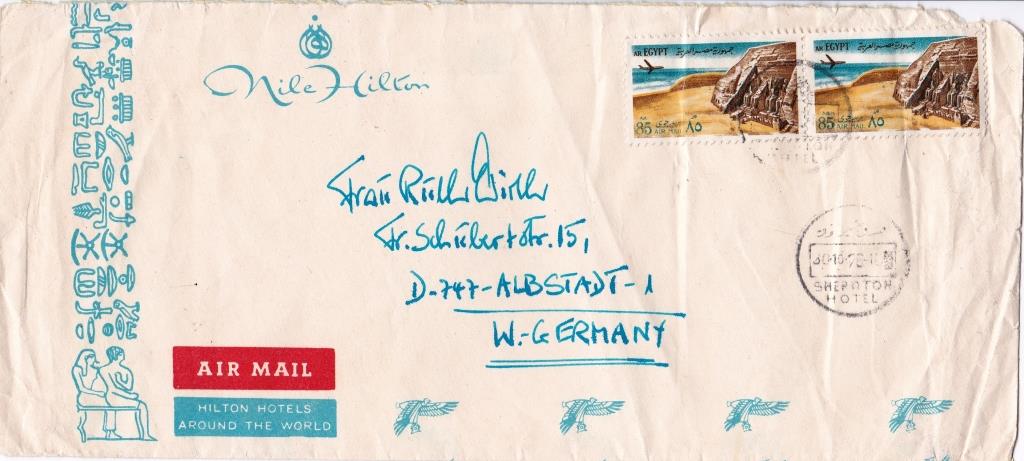 Nile Hilton
AR EGYPT جمهورية مصر العربية
85 AIR MAIL ٨٥
AR EGYPT جمهورية مصر العربية
85 AIR MAIL ٨٥
HOTEL
Frau Ruth
Fr. Schubertstr. 15,
D-747-ALBSTADT-1
W.-GERMANY
SHERATON
HOTEL
AIR MAIL
HILTON HOTELS
AROUND THE WORLD